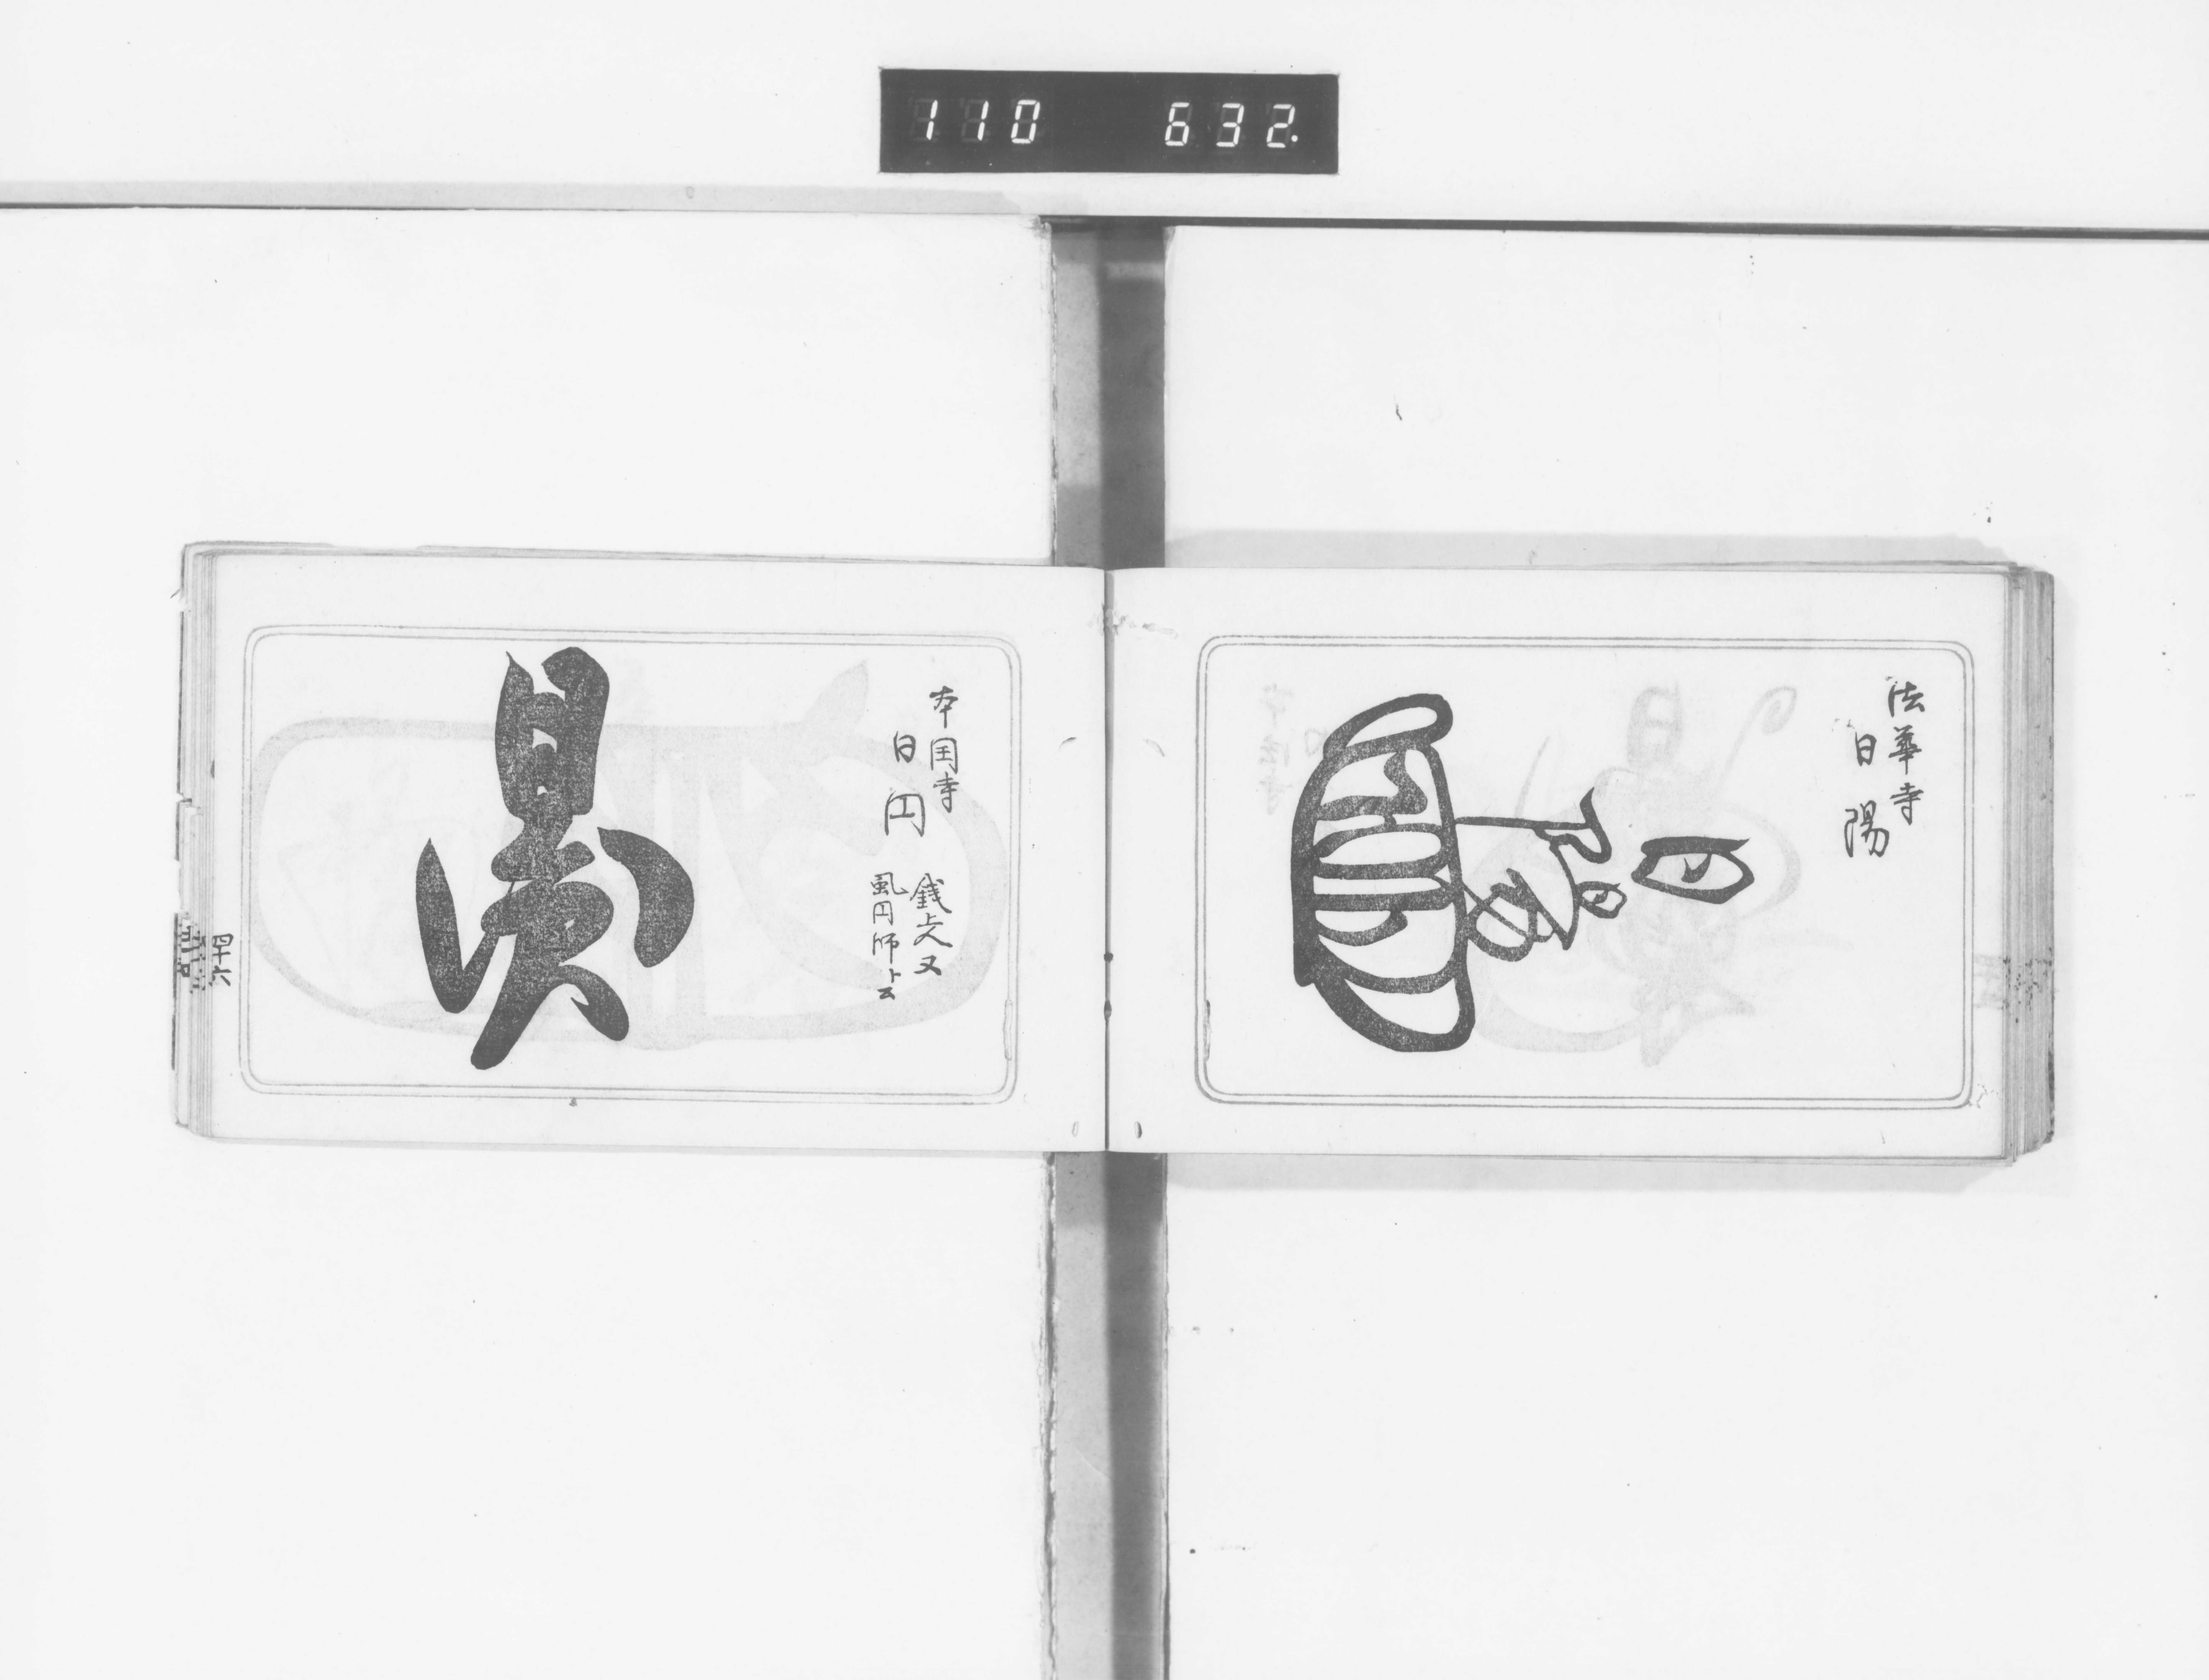 110 632.
法華寺
日陽
日陽
本国寺
日円
銭上人又
風円師ト云
四十六